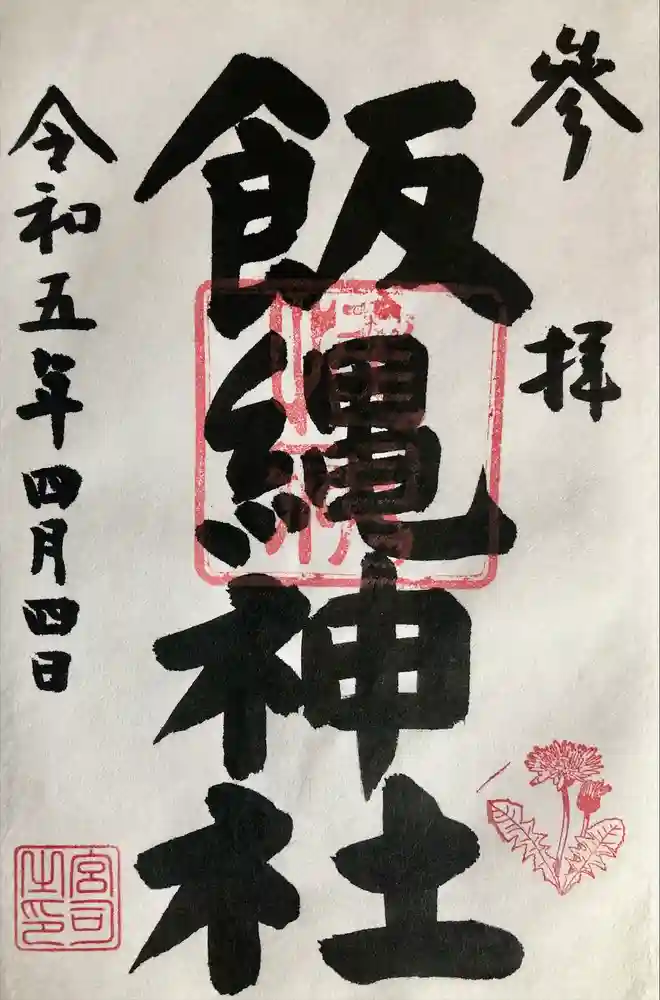 参拝
飯縄神社
令和五年四月四日
宮司之印